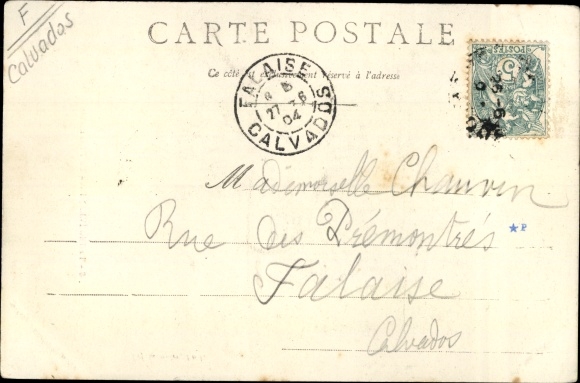 F
Calvados
CARTE POSTALE
Ce côté est exclusivement réservé à l'adresse
FALAISE
8 5
27 - 6
04
CALVADOS
POSTES
5
26-6
Mademoiselle Chauvin
Rue des Prémontrés
*P
Falaise
Calvados